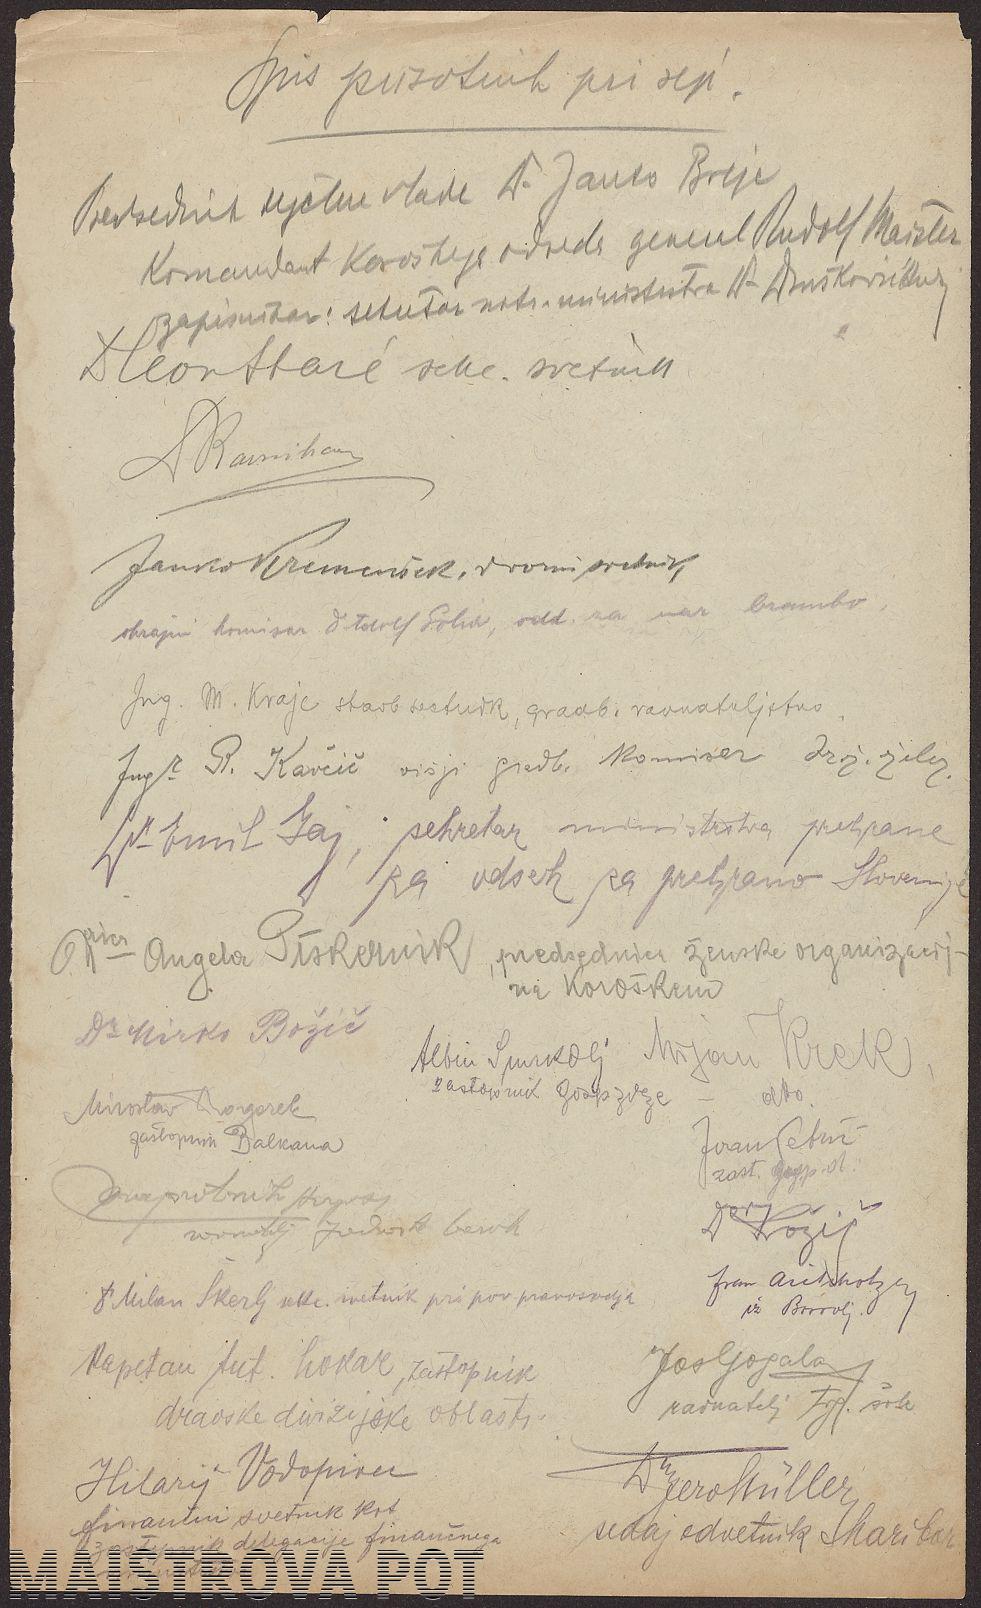 Spis prisotnih pri seji.
Predsednik dež. vlade Dr. Janko Brejc
Komandant Koroškega odreda general Rudolf Maister
zapisnikar: sekretar notr. ministrstva Dr.
Dr Leon Stare sekc. svetnik
Dr Ravnihar
Janko Kremenšek, dvorni svetnik
okrajni komisar Dr. Adolf Golia, odd. za nar. brambo.
Ing. M. Krajc stavb. svetnik, gradb. ravnateljstvo.
Ing. R. Kavčič višji gradb. komisar drž. želez.
Dr Emil Jaj, sekretar ministrstva prehrane
za odsek za prehrano Slovenije
Angela Piskernik, predsednica ženske organizacije
na Koroškem
Dr. Mirko Božič
Albin zastopnik Gosp zveze
Mirjan Krek, dto.
Miroslav
zastopnik Balkana
Ivan
zast. Gosp. d.
ravnatelj Jadransk. bank
Dr
Dr Milan Škerlj sekc. svetnik pri pov. pravosodja
Fran
iz Borovelj.
Kapetan zastopnik
dravske divizijske oblasti.
Jos Gogala
ravnatelj trg. šole
Hilarij Vodopivec
finančni svetnik kot
zastopnik delegacije finančnega
Dr Fero Müller
sedaj odvetnik Maribor
MAISTROVA POT